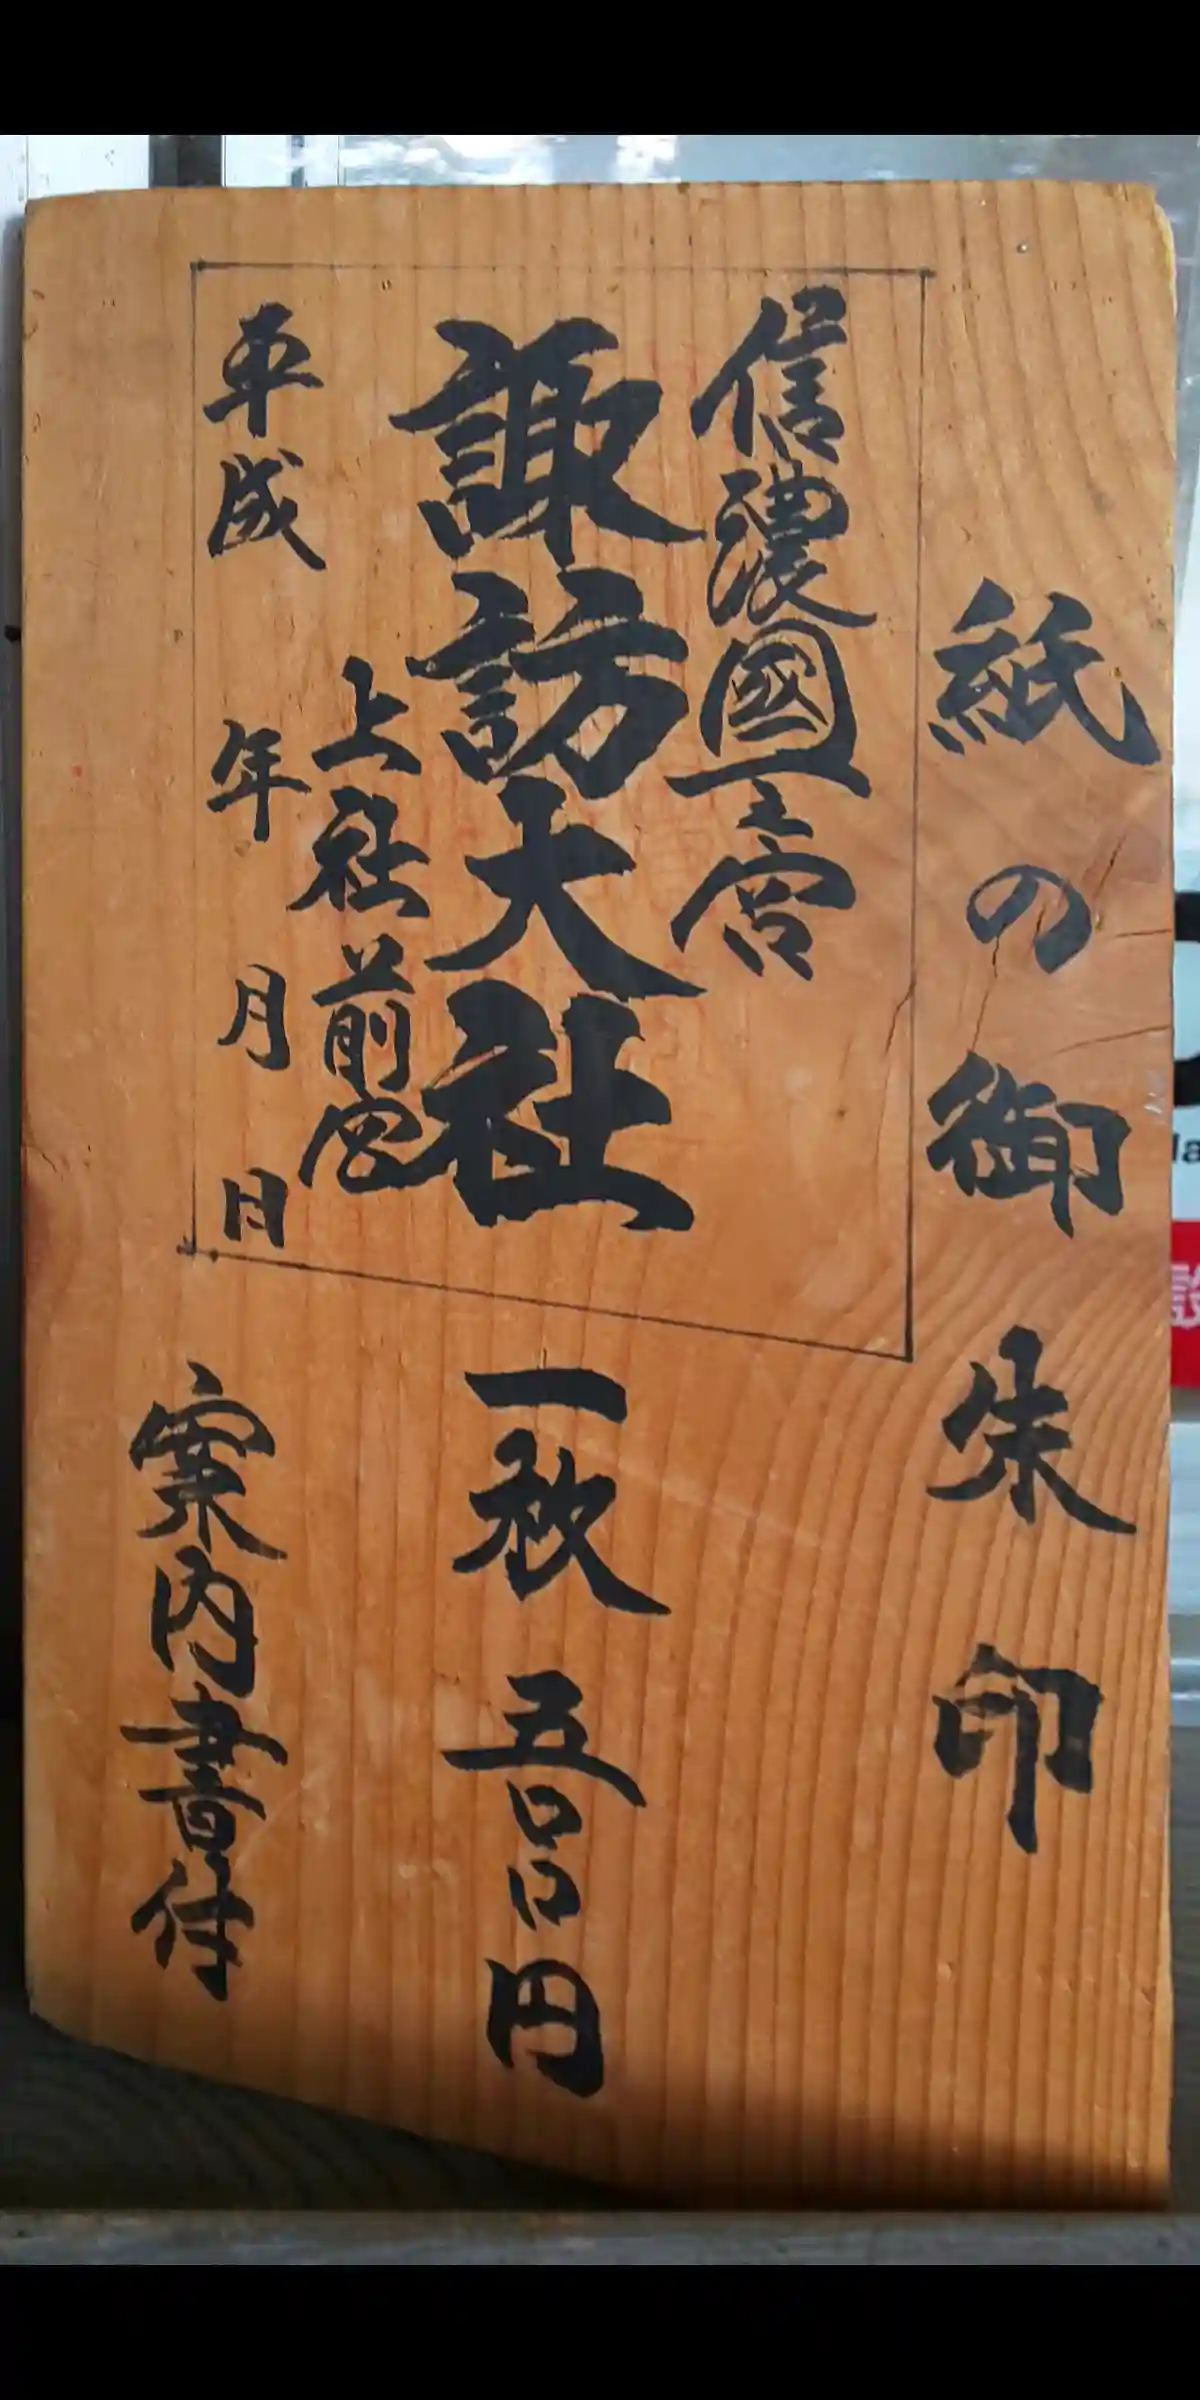 紙の御朱印
信濃國一之宮
諏訪大社
上社前宮
平成 年 月 日
一枚 五〇〇円
案内書付